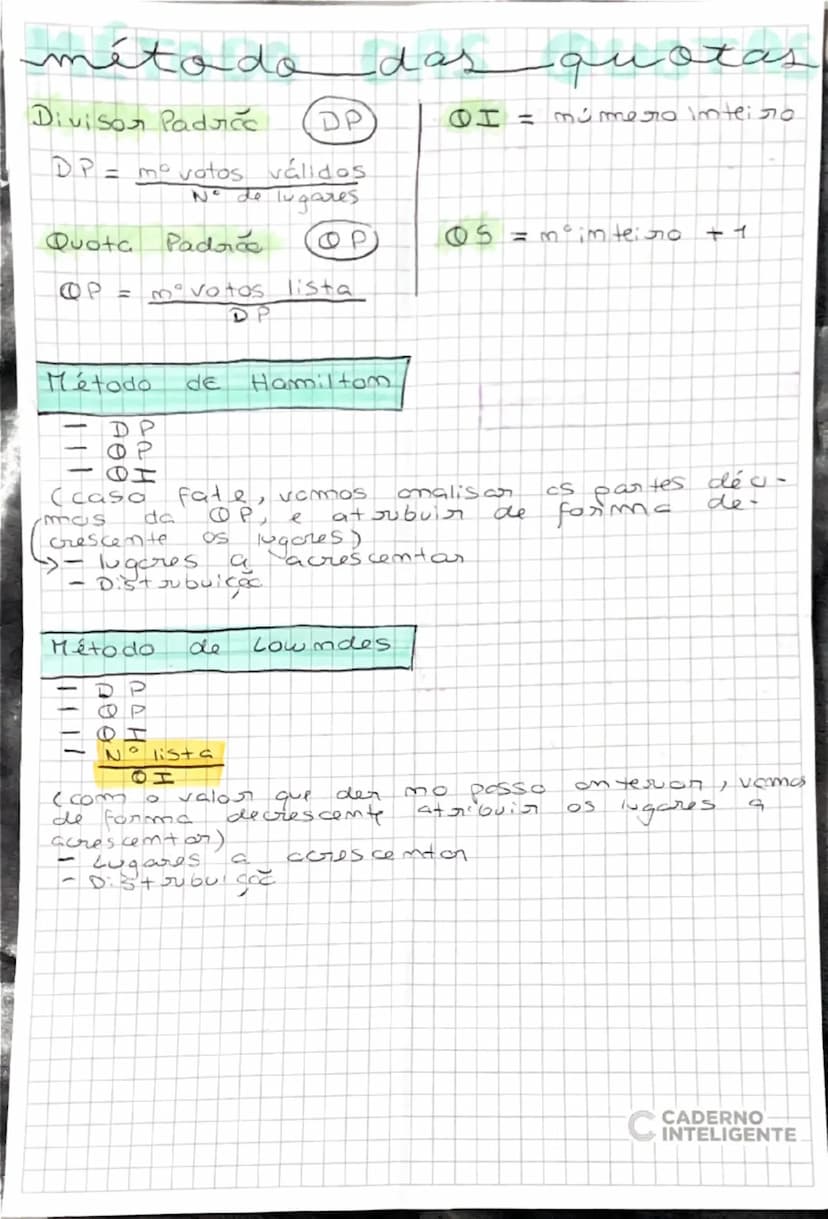 método das quotas
Divisor Padrão (DP)
DP = nº votos válidos
Nº de lugares
Quota Padrão (QP)
QP = nº votos lista
DP
QI = número inteiro
QS = nº inteiro + 1
Método de Hamilton
- DP
- QP
- QI
(caso falte, vamos analisar as partes déci-
mas da QP, e atribuir de forma de-
crescente os lugares)
→ - lugares a acrescentar
- Distribuição
Método de Lowndes
- DP
- QP
- QI
- Nº lista
QI
(com o valor que der no passo anterior, vamos
de forma decrescente atribuir os lugares a
acrescentar)
- Lugares a acrescentar
- Distribuição
CADERNO
INTELIGENTE